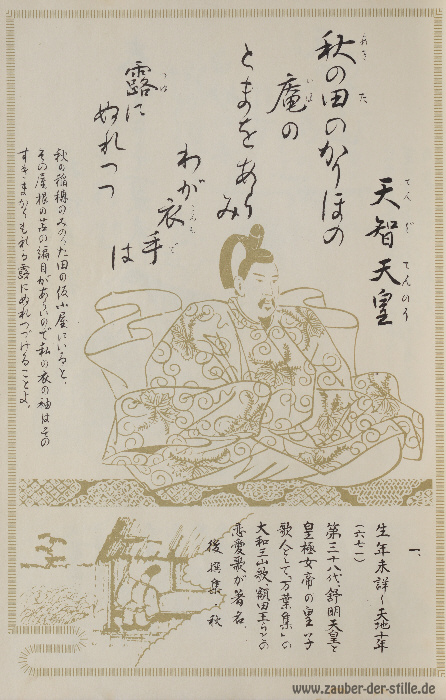 秋の田のかりほの
庵の
とまをあらみ
わが衣手
は
露に
ぬれつつ
天智天皇
てんぢてんのう
秋の稲穂のみのった田の仮小屋にいると、
その屋根の苫の編目があらいので私の衣の袖はその
すきまからもれる露にぬれつづけることよ。
一、
生年未詳〜天地十年
(六七一)
第三十八代、舒明天皇と
皇極女帝の皇子
歌人として「万葉集」の
大和三山歌、額田王らとの
恋愛歌が著名。
後撰集・秋
www.zauber-der-stille.de